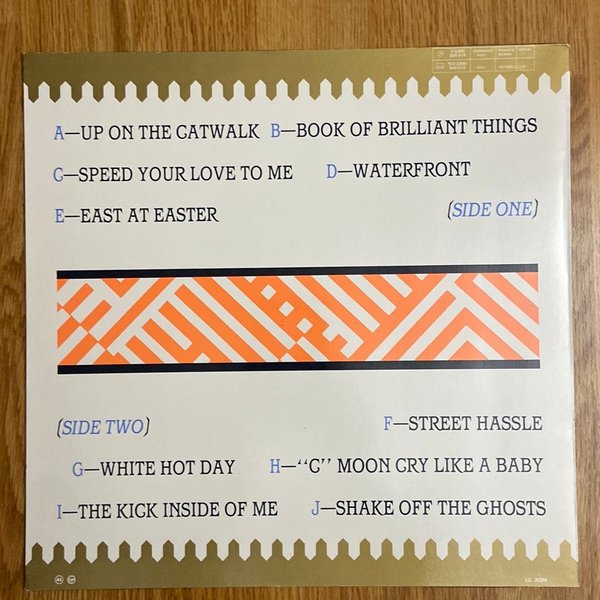 A—UP ON THE CATWALK B—BOOK OF BRILLIANT THINGS
C—SPEED YOUR LOVE TO ME D—WATERFRONT
E—EAST AT EASTER (SIDE ONE)
(SIDE TWO) F—STREET HASSLE
G—WHITE HOT DAY H—“C” MOON CRY LIKE A BABY
I—THE KICK INSIDE OF ME J—SHAKE OFF THE GHOSTS